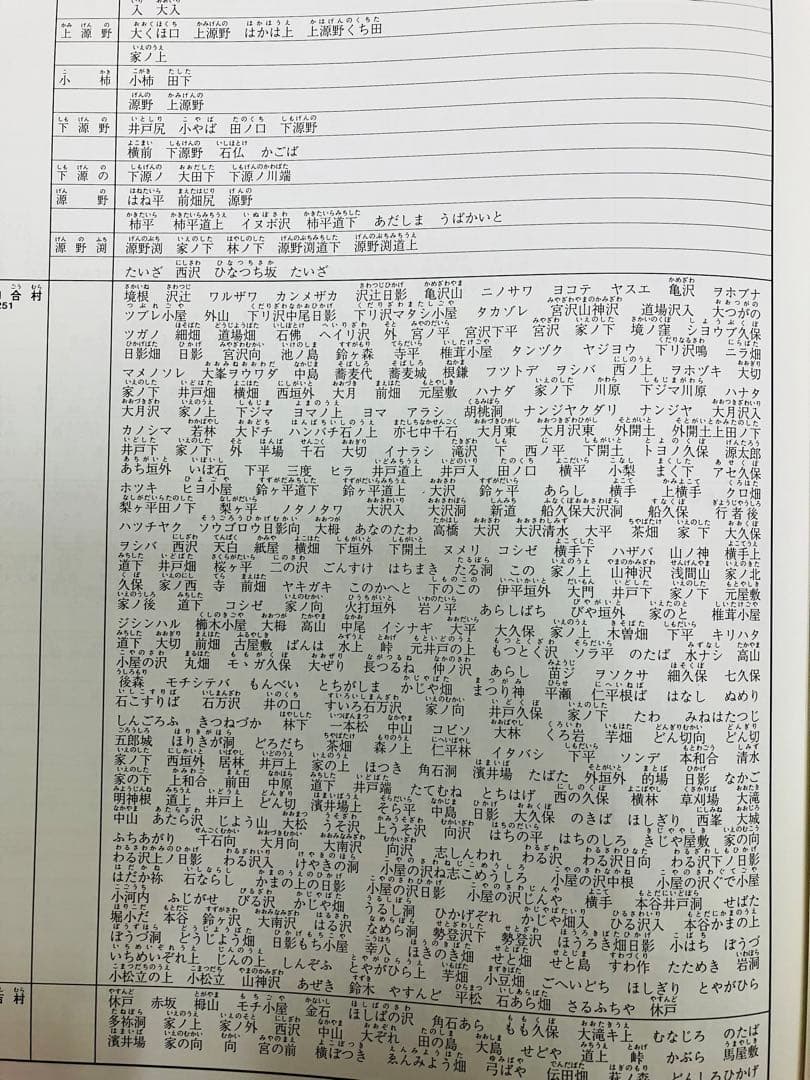 入 大入
上源野 大くほ口 上源野 はかは上 上源野くち田
家ノ上
小柿 小柿 田下
源野 上源野
下源野 井戸尻 小やば 田ノ口 下源野
横前 下源野 石仏 かごば
下源の 下源ノ 大田下 下源ノ川端
源野 はね平 前畑尻 源野
柿平 柿平道上 イヌボ沢 柿平道下 あだしま うばかいと
源野渕 源野渕 家ノ下 林ノ下 源野渕道下 源野渕道上
たいざ 西沢 ひなつち坂 たいざ
合村 境根 沢辻 ワルザワ カンメザカ 沢辻日影 亀沢山 ニノサワ ヨコテ ヤスエ 亀沢 ヲホブナ
251
ツブレ小屋 外山 下リ沢中尾日影 下リ沢マタシ小屋 タカゾレ 宮沢山神沢 道場沢入 大つがの
ツガノ 細畑 道場畑 石佛 ヘイリ沢 外 宮ノ平 宮沢下平 宮沢 家ノ下 境ノ窪 ショウブ久保
日影畑 日影 宮沢向 池ノ島 鈴ヶ森 寺平 椎茸小屋 タンヅク ヤジヨウ 下リ沢鳴 ニラ畑
マメノソレ 大峯ヲウワダ 中島 蕎麦代 蕎麦城 根鎌 フツトデ ヲシバ 西ノ上 ヲホヅキ 大切
家ノ下 井戸畑 横畑 西垣外 大月 前畑 元屋敷 ハナダ 家ノ下 川原 下ジマ川原 ハナタ
大月沢 家ノ上 下ジマ ヨマノ上 ヨマ アラシ 胡桃洞 ナンジヤクダリ ナンジヤ 大月沢入
カノシマ 若林 大下チ ハンバチ石ノ上 亦七中千石 大月東 大月沢東 外開土 外開土上田ノ下
井戸下 家ノ下 外 半場 千石 大切 イナラシ 滝沢 下 西ノ平 下開土 トヨノ久保 源太郎
あち垣外 いぼ石 下平 三度 ヒラ 井戸道上 井戸入 田ノ口 横平 小梨 まく下 アセ久保
ホツキ ヒヨ小屋 鈴ヶ平道下 鈴ヶ平道上 大沢 鈴ヶ平 あらし 横手 上横手 クロ畑
梨ヶ平田ノ下 梨ヶ平 ノタノタワ 大沢入 大沢洞 新道 船久保大沢洞 船久保 行者後
ハツチヤク ソウゴロウ日影向 大栂 あなのたわ 高橋 大沢 大沢清水 大平 茶畑 家下 大久保
ヲシバ 西沢 天白 紙屋 横畑 下垣外 下開土 ヌメリ コシゼ 横手下 ハザバ 山ノ神 横手上
道下 井戸畑 桜ヶ平 二の沢 ごんすけ はちまき たる洞 この 家ノ上 山神沢 浅間山 家ノ北
久保 家ノ西 寺 前畑 ヤキガキ このかへと 下のこの 伊平垣外 大門 井戸下 家ノ下 元屋敷
家ノ後 道下 コシゼ 家ノ向 火打垣外 岩ノ平 あらしばち びや垣外 家のと 椎茸小屋
ジシンハル 櫛木小屋 大栂 高山 中尾 イシナギ 大平 大久保 家ノ上 木曽畑 下平 キリハタ
道下 大切 前畑 古屋敷 ばんは 水上 峠 元井戸の上 もつとく沢 ソラ平 のたば 水ナシ 高山
小屋の沢 丸畑 モヽガ久保 大ぜり 長つるね 仲ノ沢 あらし 苗ジ ヲソクサ 細久保 七久保
後森 モチシテバ もんべい とちがしま かじや畑 まつがり神 平瀬 仁平根ば はなし ぬめり
石こすりば 石万沢 井の口 すいろ石万沢 家ノ向 井戸久保 家ノ下 たわ みねはたつじ
しんごろふ きつねづか 林下 一本松 中山 コビソ 大林 くろ岩 芋畑 どん切向 どん切
五郎城 ほりきが洞 どろだち 茶畑 森ノ上 仁平林 イタバシ 下平 ソンデ 本和合 清水
家ノ下 西垣外 居林 井戸上 家の上 ほつき 角石洞 濱井場 たばた 外垣外 的場 日影 なかご
家の下 上和合 前田 中原 道下 井戸端 たてむね とちはげ 西の久保 横林 草刈場 大滝
明神根 道上 井戸上 どん切 濱井場上 そら平 中島 日影 大久保 のきば ほしぎり 西峯 大城
中山 あたら沢 じょう山 大松 うそ沢 上うそ沢 向沢 はちの平 はちのしろ きじや屋敷 家の向
ふちあがり 千石向 大月向 大南沢 向沢 志しんわれ わる沢 わる沢日向 わる沢下ノ日影
わる沢上ノ日影 わる沢入 けやきの洞 小屋の沢ね志こめうしろ 小屋の沢中根 小屋の沢ぐで小屋
はだか祢 石ならし かまの上の日影 小屋の沢日影 小屋の沢じんや 横手 本谷井戸洞 せばた
小河内 ふじがせ びる沢 かじや畑 うるし洞 ひかげぞれ かじや畑入 ひる沢入 本谷かまの上
堀小だ 本谷 鈴ヶ沢 大南沢 はる沢 なめら洞 勢登沢下 勢登沢 ほうろき畑日影 小はち ぼうづ
ぼうづ洞 どうじよう畑 日影もち小屋 幸八 ほきのき畑 せと畑 せと島 すわ作 たためき 岩洞
いちめいぞれ上 じんの上 しんぞふ とやがひら上 芋畑 小豆畑 ごへいどち ほしぎり とやがひら
小松立の上 小松立 山神沢 あぜき 鈴木 やすんど 平松 石あら畑 さるふちや 休戸
村 休戸 赤坂 栂山 モチ小屋 金石 ほしばの沢 角石あら もも久保 大滝キ上 むなじろ のたば
多祢洞 家ノ上 家ノ外 西沢 中山 大ぞれ 田の島 大島 せどや 道上 峠 かぶら 馬屋敷
濱井場 家の向 向 宮の前 横ぼつき ゑんみょう畑 弓ばや 伝田畑 萩ノ森 どんしろひかげ